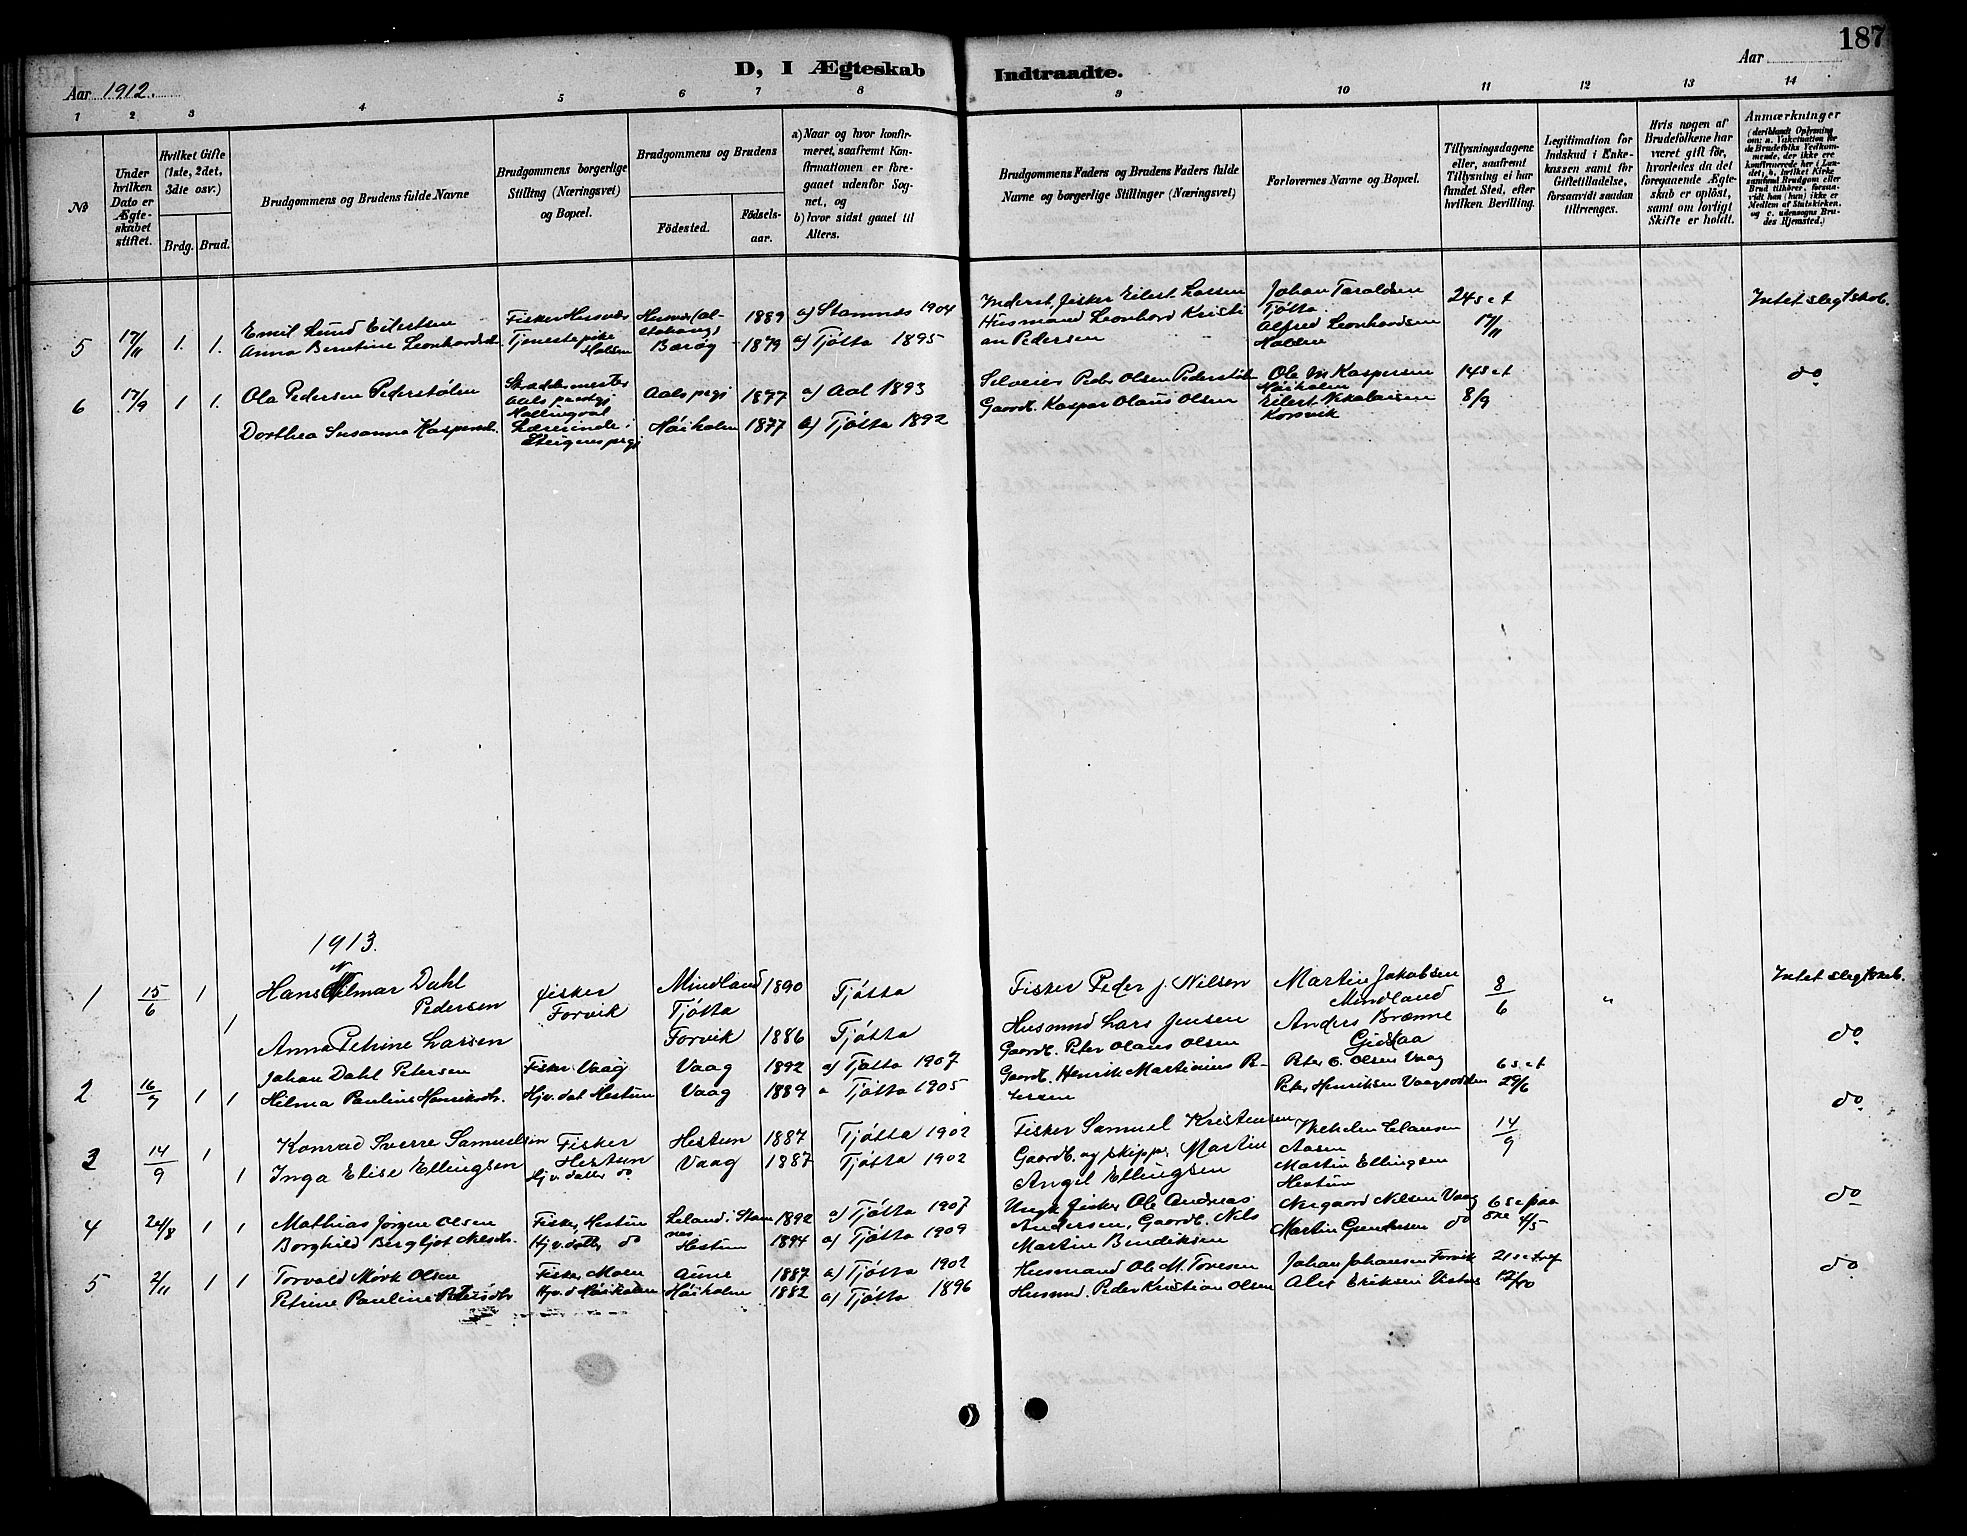 187
D, I Ægteskab Indtraadte.
Aar 1912.
Aar
1 2 3 4 5 6 7 8 9 10 11 12 13 14
No
Under hvilken Dato er Ægteskabet stiftet.
Hvilket Gifte (1ste, 2det, 3die osv.)
Brdg. Brud.
Brudgommens og Brudens fulde Navne
Brudgommens borgerlige Stilling (Næringsvei) og Bopæl.
Brudgommens og Brudens
Fødested.
Fødselsaar.
a) Naar og hvor konfirmeret, saafremt Konfirmationen er foregaaet udenfor Sognet, og
b) hvor sidst gaaet til Alters.
Brudgommens Faders og Brudens Faders fulde Navne og borgerlige Stillinger (Næringsvei)
Forlovernes Navne og Bopæl.
Tillysningsdagene eller, saafremt Tillysning ei har fundet Sted, efter hvilken Bevilling.
Legitimation for Indskud i Enkekassen samt for Giftetilladelse, forsaavidt saadan tiltrænges.
Hvis nogen af Brudefolkene har været gift før, hvorledes da det foregaaende Ægteskab er opløst, samt om lovligt Skifte er holdt.
Anmærkninger (deriblandt Oplysning om: a. Vakcination for de Brudefolks Vedkommende, der ikke ere konfirmerede her i Landet; b. hvilket Kirkesamfund Brudgom eller Brud tilhører, forsaavidt han (hun) ikke er Medlem af Statskirken, og c. udensogns Brudes Hjemsted.)
5 17/11 1. 1. Emil Lund Eilertsen Fisker Husvær Husvær (Alstahaug) 1889 a) Stamnes 1904 Inderst, fisker Eilert Larsen Johan Taraldsen Tjøtta 24 s e t Intet slegtskab.
Anna Berntine Leonhardsdtr. Tjenestepike Halsen Barøy 1879 a) Tjøtta 1895 Husmand Leonhard Kristian Pedersen Alfred Leonhardsen Halsen 17/11
6 17/9 1 1. Ola Pedersen Pederstølen Skreddermester Aals prestgj Hallingdal Aals prgj 1877 a) Aal 1893 Selveier Peder Olsen Pederstølen Ole M Kaspersen Høiholm 14 s e t do
Dorthea Susanne Kaspersdtr. Lærerinde i Steigens prgj Høiholm 1877 a) Tjøtta 1892 Gaardb. Kaspar Olaus Olsen Eilert Nikolaisen Korsvik 8/9
1913.
1 15/6 1 Hans Hilmar Dahl Pedersen fisker Forvik Mindland Tjøtta 1890 Tjøtta Fisker Peder J. Nilsen Martin Jakobsen Mindland 8/6 " Intet slegtskab.
1 Anna Petrine Larsen Forvik 1886 Tjøtta Husmnd Lars Jensen Anders Brænne
2 16/7 1 1 Johan Dahl Petersen Fisker Vaag Vaag 1892 a) Tjøtta 1907 Gaardb. Peter Olaus Olsen Peter O. Olsen Vaag 6 s e t do
Hilma Pauline Henriksdtr. Hjv. dat Hestun Vaag 1889 a Tjøtta 1905 Gaardb. Henrik Martinius Petersen Peter Henriksen Vaagsodden 29/6
3 14/9 1 Konrad Sverre Samuelsen Fisker Hestun Hestun 1887 Tjøtta 1902 Fisker Samuel Kristensen Vilhelm Clausen Aasen 14/9 do
1 Inga Elise Ellingsen Hjv. datter do Vaag 1887 Tjøtta 1902 Gaardb. og skipper Martin Angel Ellingsen Martin Ellingsen Hestun
4 24/8 1 1 Mathias Jørgen Olsen Fisker, Hestun Leland i Stamnes 1892 a) Tjøtta 1907 Ungk fisker Ole Andreas Andersen, Nergaard Nilsen Vaag 6 s e paaske do
Borghild Bergljot Nilsdtr. Hjv. datter do Hestun 1894 a) Tjøtta 1909 Gaardb. Nils Martin Bendiksen do 4/5
5 2/11 1 1 Torvald Mørk Olsen Fisker, Moen Aune 1887 a) Tjøtta 1902 Husmand Ole M. Toresen Johan Johansen Forvik 21 s e tref do
Petrine Pauline Pedersdtr Hjv. d Høiholm Høiholm 1882 a) Tjøtta 1896 Husmnd. Peder Kristian Olsen 12/10